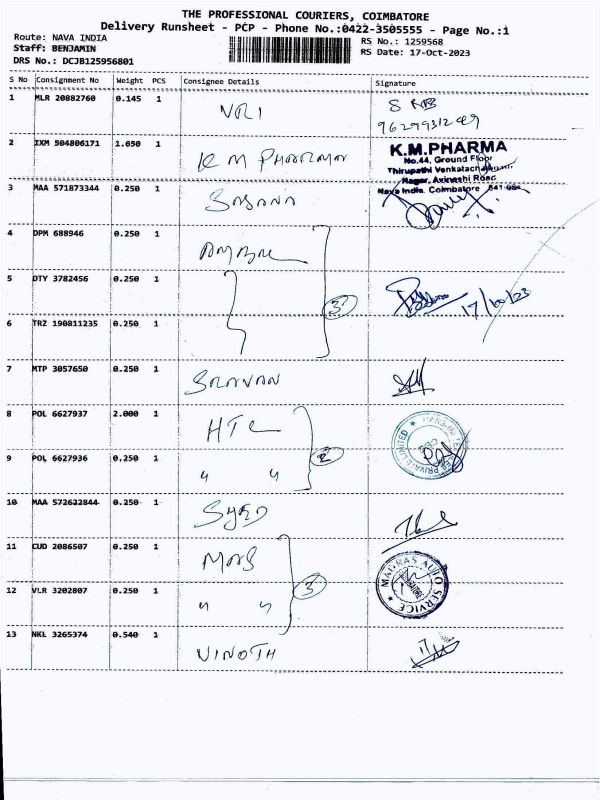 THE PROFESSIONAL COURIERS, COIMBATORE
Delivery Runsheet - PCP - Phone No.:0422-3505555 - Page No.:1
Route: NAVA INDIA
RS No.: 1259568
Staff: BENJAMIN
RS Date: 17-Oct-2023
DRS No.: DCJB125956801
S No Consignment No Weight PCS Consignee Details Signature
1 MLR 20882760 0.145 1 NRI
9629931249
2 IXM 504806171 1.650 1 K M PHARMA
K.M.PHARMA
No.44, Ground Floor
Thirupathi Venkatachalam
Nagar, Avinashi Road
Nava India, Coimbatore 641 004
3 MAA 571873344 0.250 1
4 DPM 688946 0.250 1
5 DTY 3782456 0.250 1 3 17/10/23
6 TRZ 190811235 0.250 1
7 MTP 3057650 0.250 1 SARAVAN
8 POL 6627937 2.000 1 HTC
9 POL 6627936 0.250 1 " " 2
PRIVATE LIMITED
10 MAA 572622844 0.250 1 SYED
11 CUD 2086507 0.250 1 MAS
12 VLR 3202807 0.250 1 " " 3
MADRAS AUTO SERVICE
13 NKL 3265374 0.540 1 VINOTH